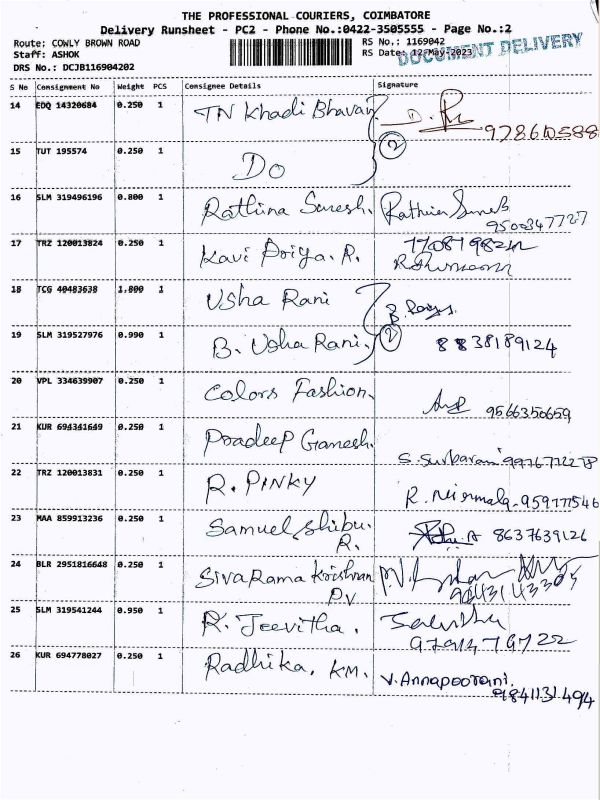 THE PROFESSIONAL COURIERS, COIMBATORE
Delivery Runsheet - PC2 - Phone No.:0422-3505555 - Page No.:2
Route: COWLY BROWN ROAD
Staff: ASHOK
DRS No.: DCJB116904202
RS No.: 1169042
RS Date: 12-May-2023
DOCUMENT DELIVERY
S No Consignment No Weight PCS Consignee Details Signature
14 EDQ 14320684 0.250 1 TN Khadi Bhavan
15 TUT 195574 0.250 1 Do 2
16 SLM 319496196 0.800 1 Rathna Suresh. 9500347727
17 TRZ 120013824 0.250 1 Kavi Priya. R.
18 TCG 40483638 1.800 1 Usha Rani
19 SLM 319527976 0.990 1 B. Usha Rani. 2 8838189124
20 VPL 334639907 0.250 1 Colors Fashion. 9566350659
21 KUR 694341649 0.250 1 Pradeep Ganesh.
22 TRZ 120013831 0.250 1 R. PINKY R. Nirmala. 959177546
23 MAA 859913236 0.250 1 Samuel Shibu. R. 8637639126
24 BLR 2951816648 0.250 1 SivaRama Krishnan P.V
25 SLM 319541244 0.950 1 R. Jeevitha.
26 KUR 694778027 0.250 1 Radhika. KM. V. Annapoorani. 9841131494